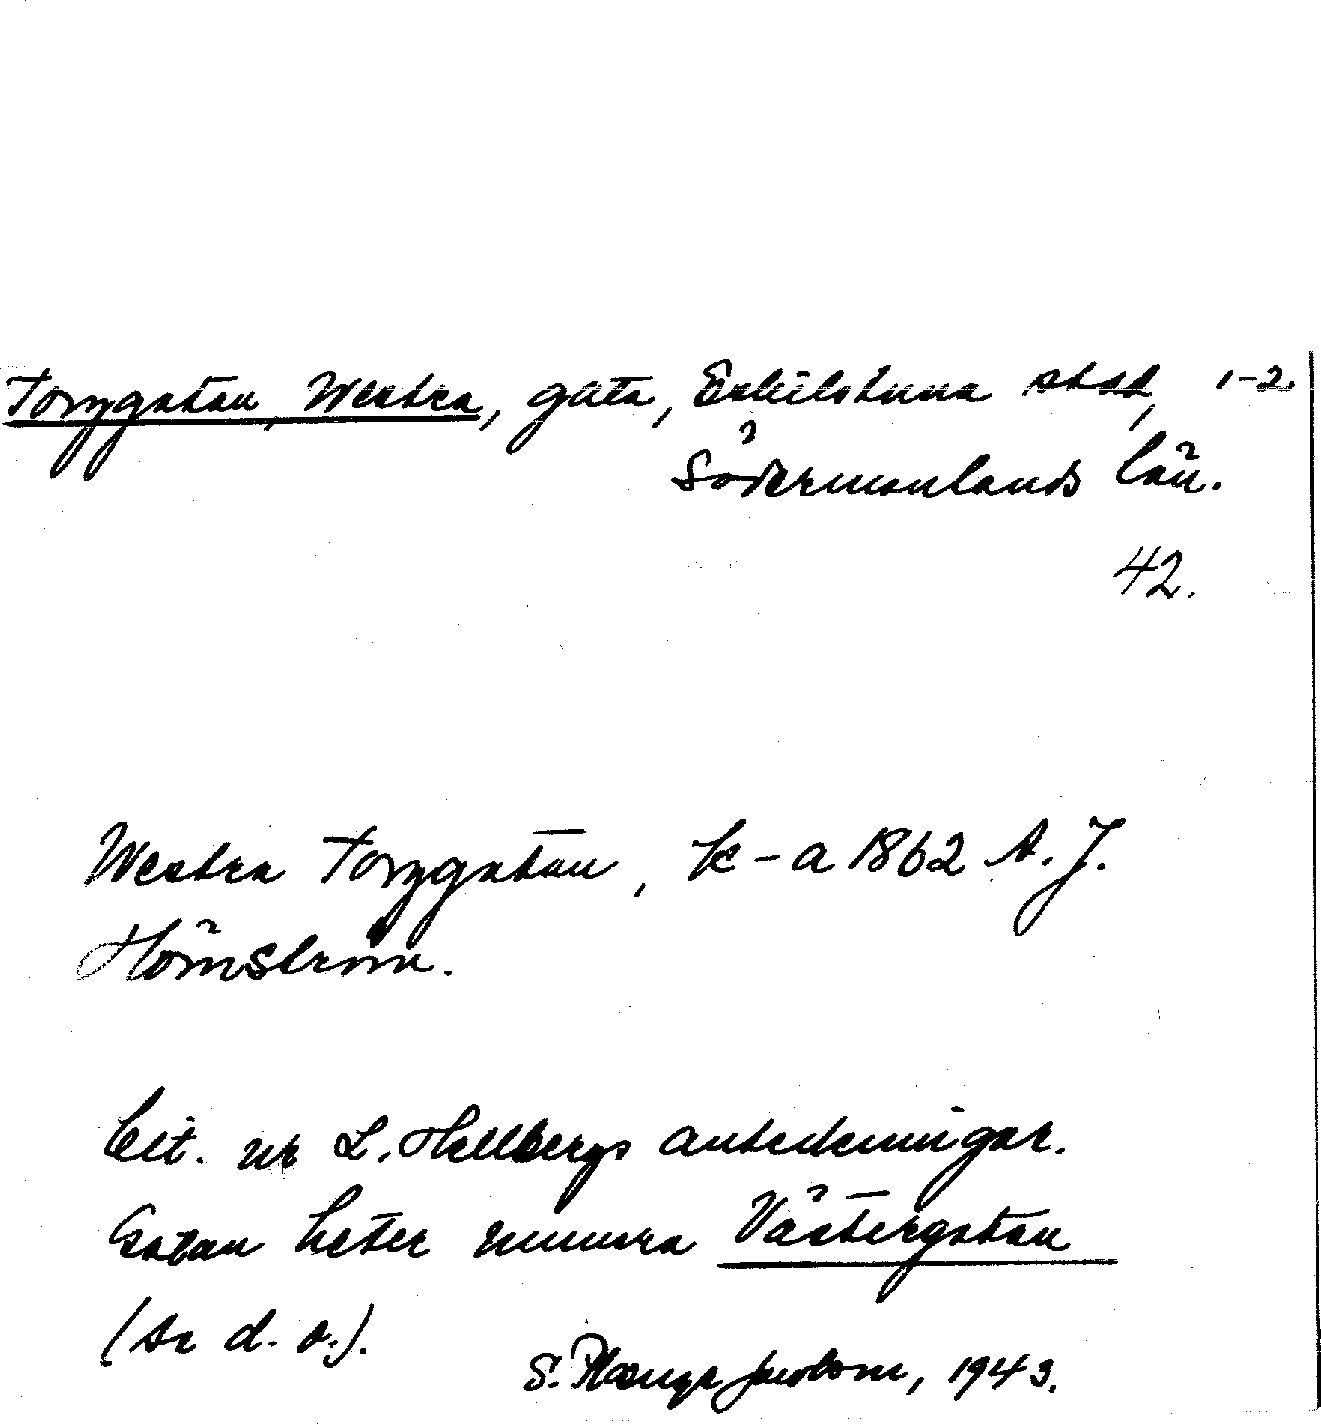 Torggatan, Westra, gata, Eskilstuna stad, 1-2.
Södermanlands län.
42.
Westra Torggatan, k-a 1862 A. J.
Hörnström.
Cit. ur L. Hellbergs anteckningar.
Gatan heter numera Västergatan
(se d. o.).
S. 1943.